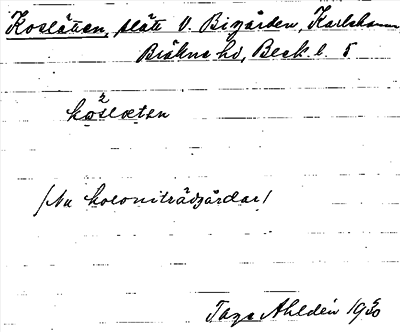 Koslätten, slätt V. Bigården, Karlshamn
Bräkne hd, Blek. l. 5
2
kosloeten
/Nu koloniträdgårdar/
Tage Ahldén 1930